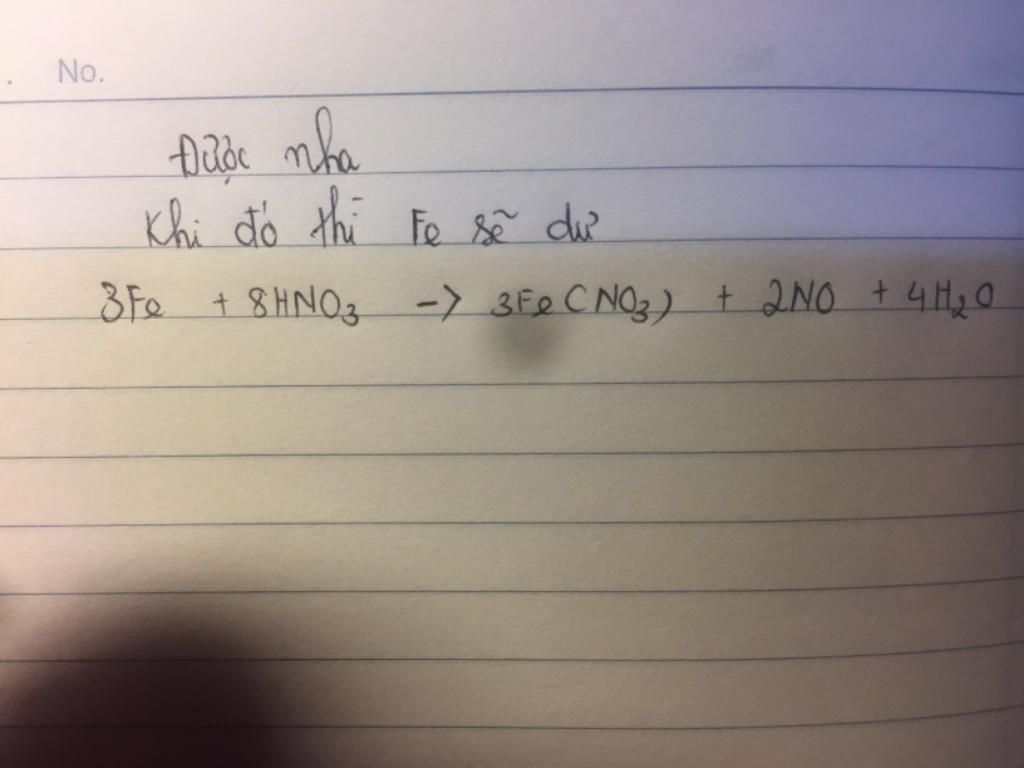 No.
Được nha
Khi đó thì Fe sẽ dư
3Fe + 8HNO₃ -> 3Fe(NO₃) + 2NO + 4H₂O